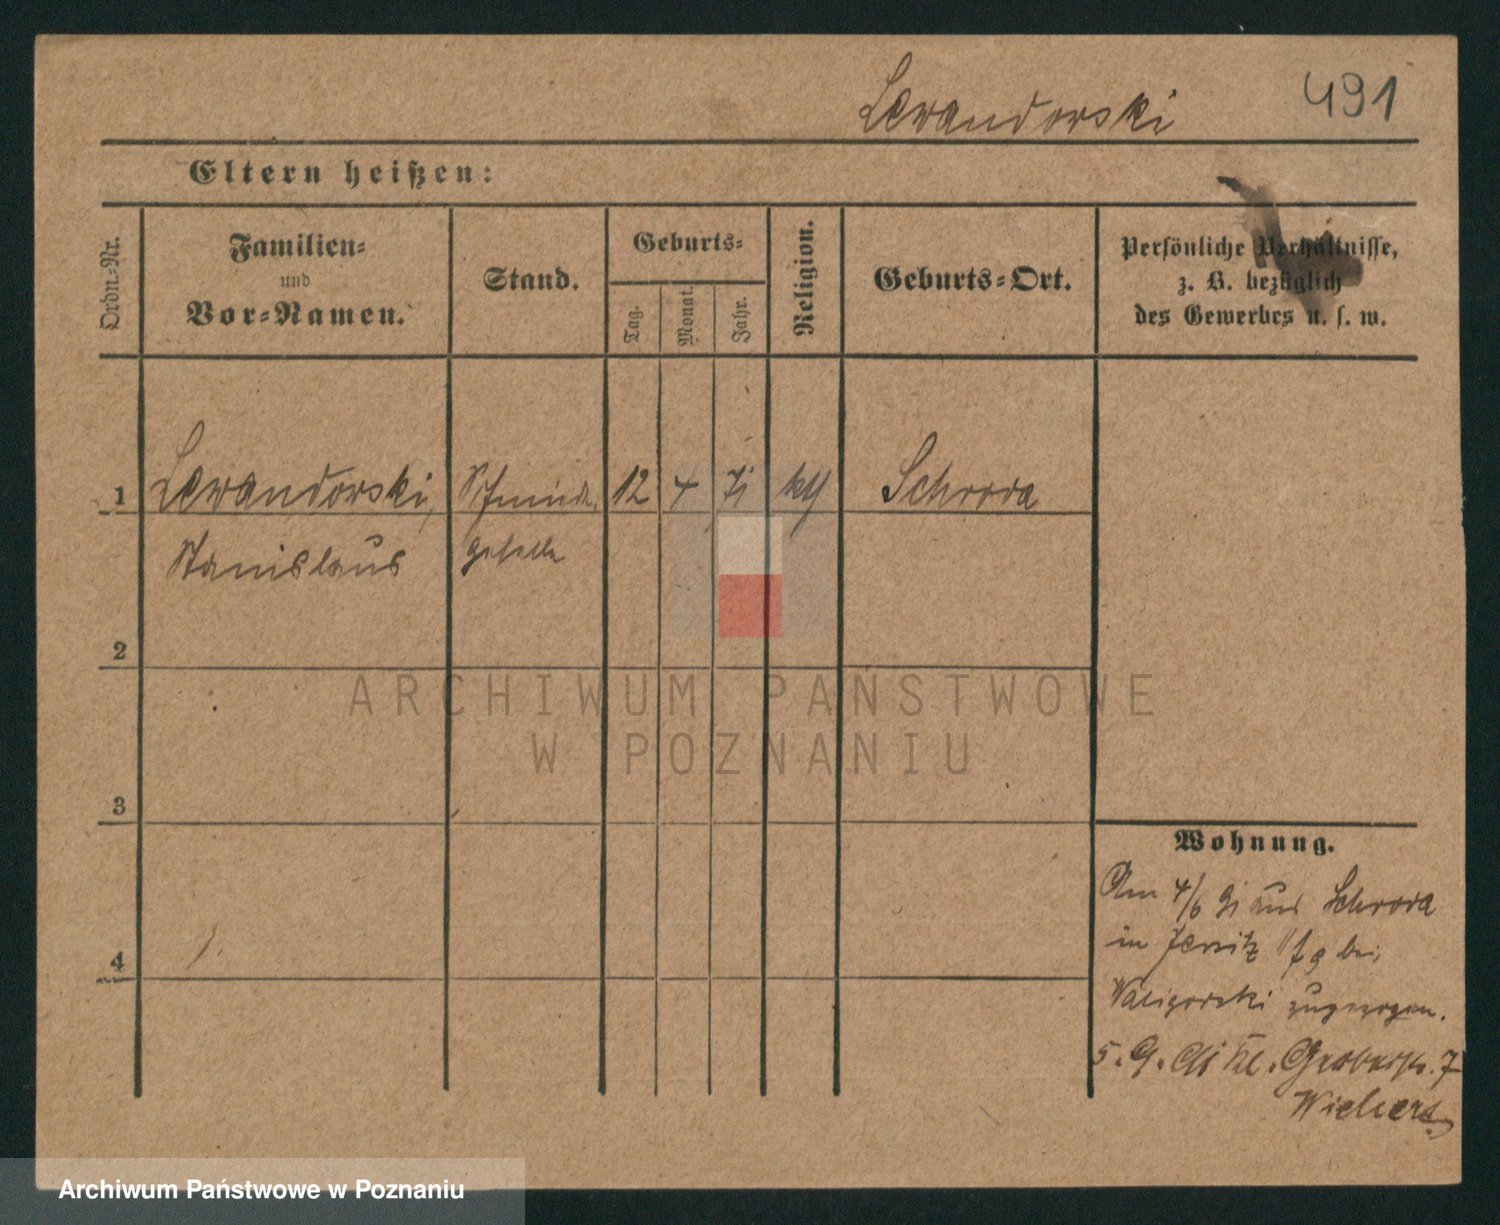 Lewandowski
491
Eltern heißen:
Ordn.=Nr.
Familien=
und
Vor=Namen.
Stand.
Geburts=
Tag.
Monat.
Jahr.
Religion.
Geburts=Ort.
Persönliche Verhältnisse,
z. B. bezüglich
des Gewerbes u. s. w.
1
Lewandowski,
Stanislaus
Schmiede
geselle
12
4
71
kth
Schroda
2
3
4
ARCHIWUM PAŃSTWOWE
W POZNANIU
Wohnung.
Am 4/6 91 aus Schroda
in Jersitz bei
Waligorski zugezogen.
5. 9. 91 Kl. Gerberstr. 7
Archiwum Państwowe w Poznaniu